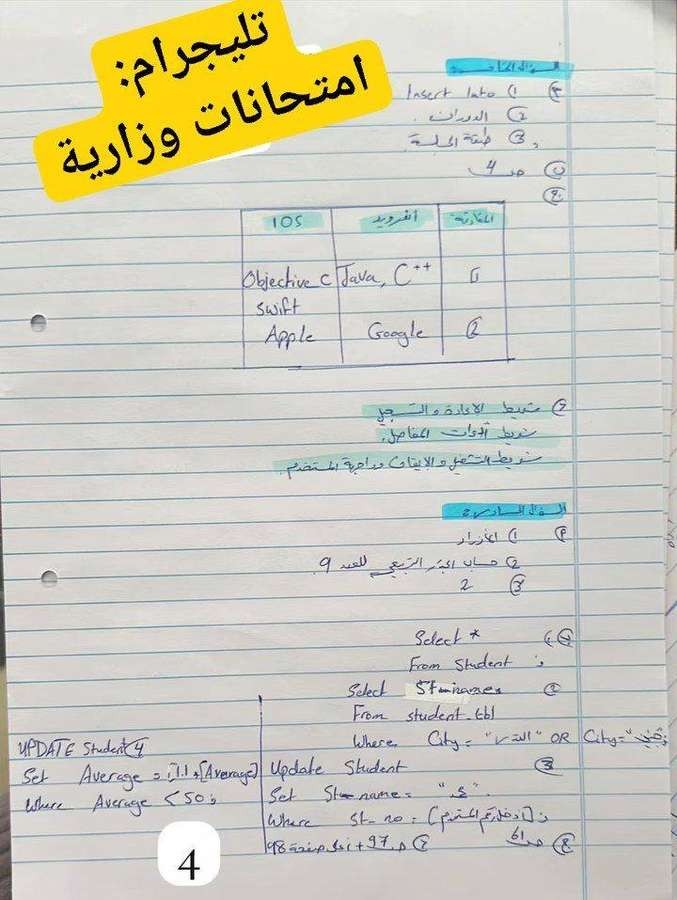 تليجرام:
امتحانات وزارية
السؤال الخامس
أ) 1) Insert Into
2) الدوران.
3) طبقة الجلسة.
ب) صـ 4
ج)
المقارنة | اندرويد | IOS
1) | Java, C++ | Objective C swift
2) | Google | Apple
د) شريط الإعادة والتسجيل
شريط أدوات المفاصل.
شريط التشغيل والإيقاف وواجهة المستخدم.
السؤال السادس
أ) 1)
2) حساب الجذر التربيعي للعدد 9.
3) 2
ب) 1) Select *
From Student ;
2) Select St-name
From student_tbl
Where City = OR City =
3) Update Student
Set St-name = " "
Where st-no = [أدخل رقم] ;
4) UPDATE Student
Set Average = [Average]
Where Average < 50 ;
ج) صـ 61
د) صـ 97 + صفحة 98
4